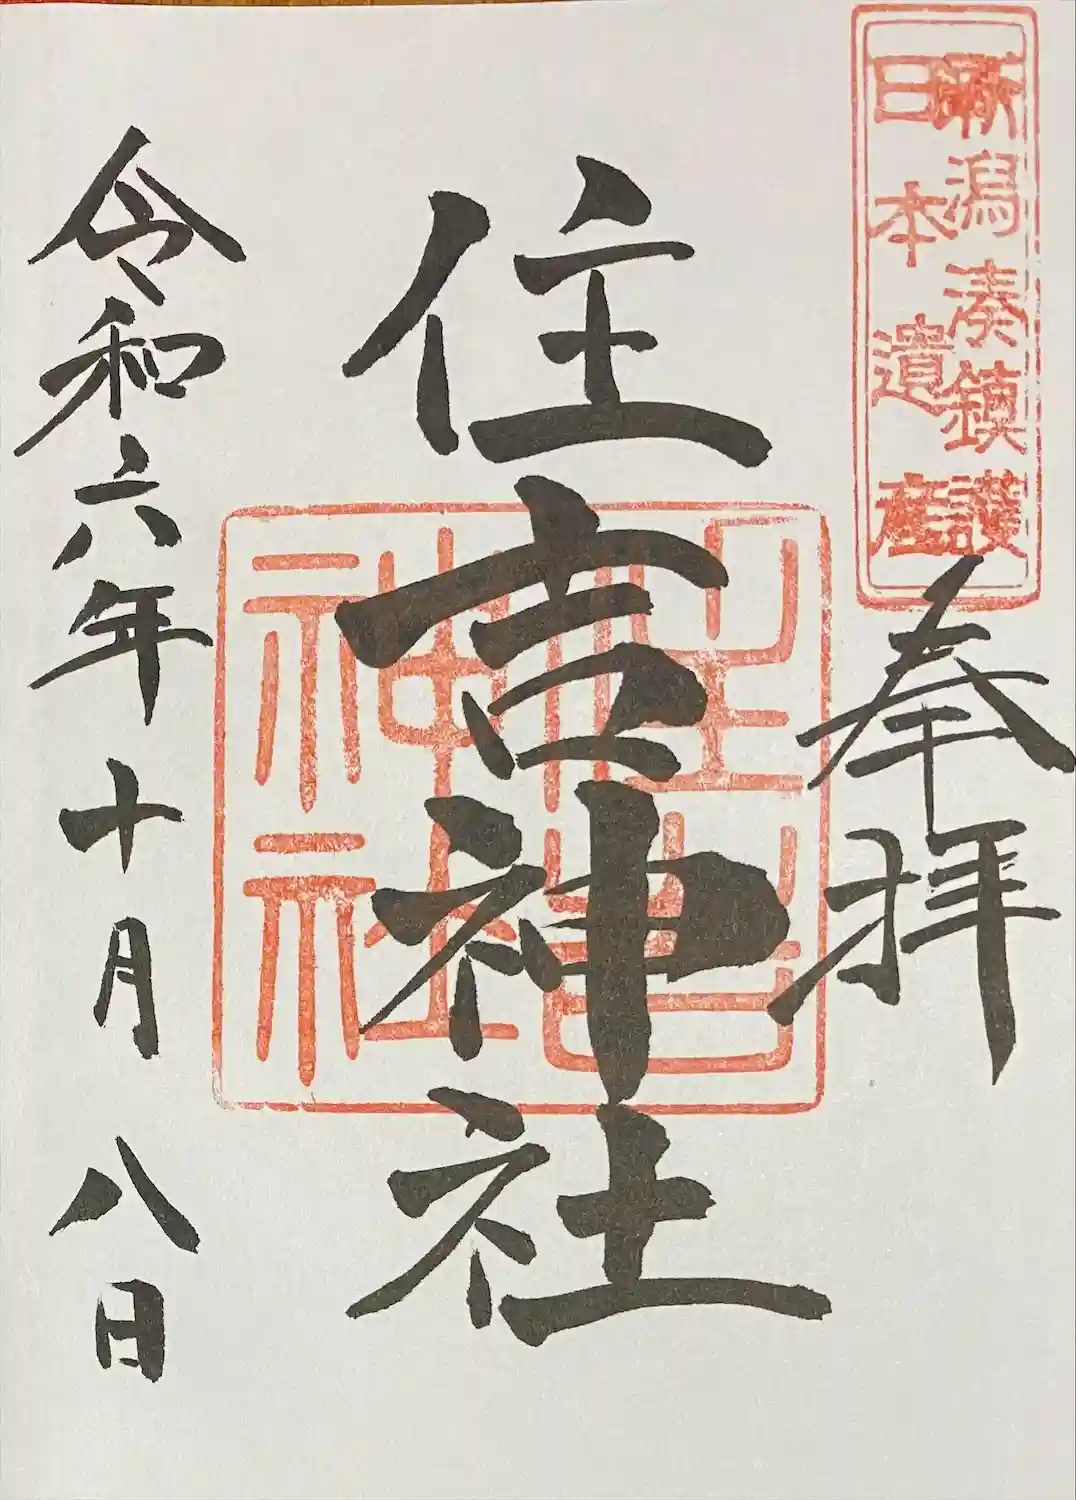 新潟湊鎮護
日本遺産
奉拝
住吉神社
住吉
神社
令和六年十月八日